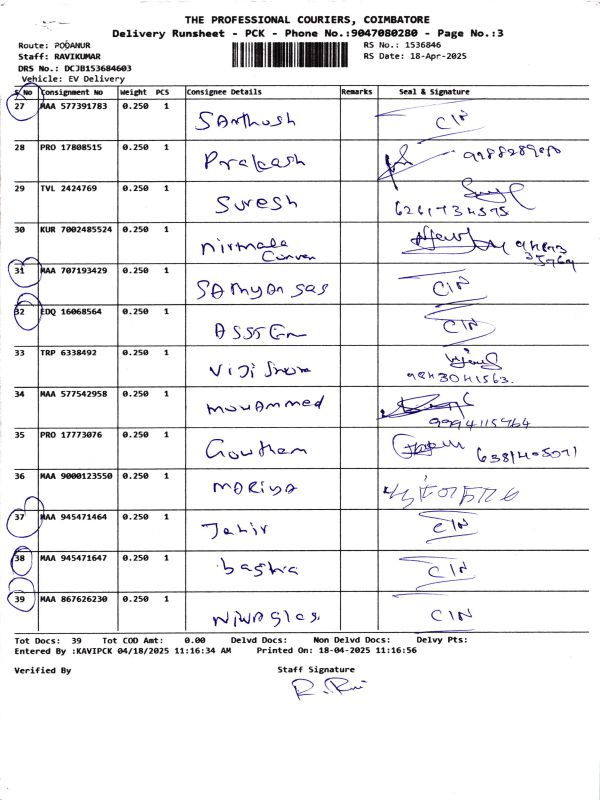 THE PROFESSIONAL COURIERS, COIMBATORE
Delivery Runsheet - PCK - Phone No.:9047080280 - Page No.:3
Route: PODANUR
RS No.: 1536846
Staff: RAVIKUMAR
RS Date: 18-Apr-2025
DRS No.: DCJB153684603
Vehicle: EV Delivery
S No Consignment No Weight PCS Consignee Details Remarks Seal & Signature
27 MAA 577391783 0.250 1 Santhosh C/N
28 PRO 17808515 0.250 1 Prakash
29 TVL 2424769 0.250 1 Suresh
6261734575
30 KUR 7002485524 0.250 1 Nirmala
31 MAA 707193429 0.250 1 C/N
32 EDQ 16068564 0.250 1 C/N
33 TRP 6338492 0.250 1
9843041563.
34 MAA 577542958 0.250 1 Mohammed
9994115464
35 PRO 17773076 0.250 1 Gowtham
6381405071
36 MAA 9000123550 0.250 1 MARIYA
37 MAA 945471464 0.250 1 Jahir C/N
38 MAA 945471647 0.250 1 C/N
39 MAA 867626230 0.250 1 C/N
Tot Docs: 39 Tot COD Amt: 0.00 Delvd Docs: Non Delvd Docs: Delvy Pts:
Entered By :KAVIPCK 04/18/2025 11:16:34 AM Printed On: 18-04-2025 11:16:56
Verified By Staff Signature